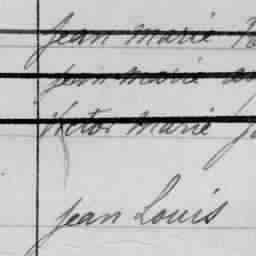 Jean Marie
Jean Marie
Victor Marie
Jean Louis